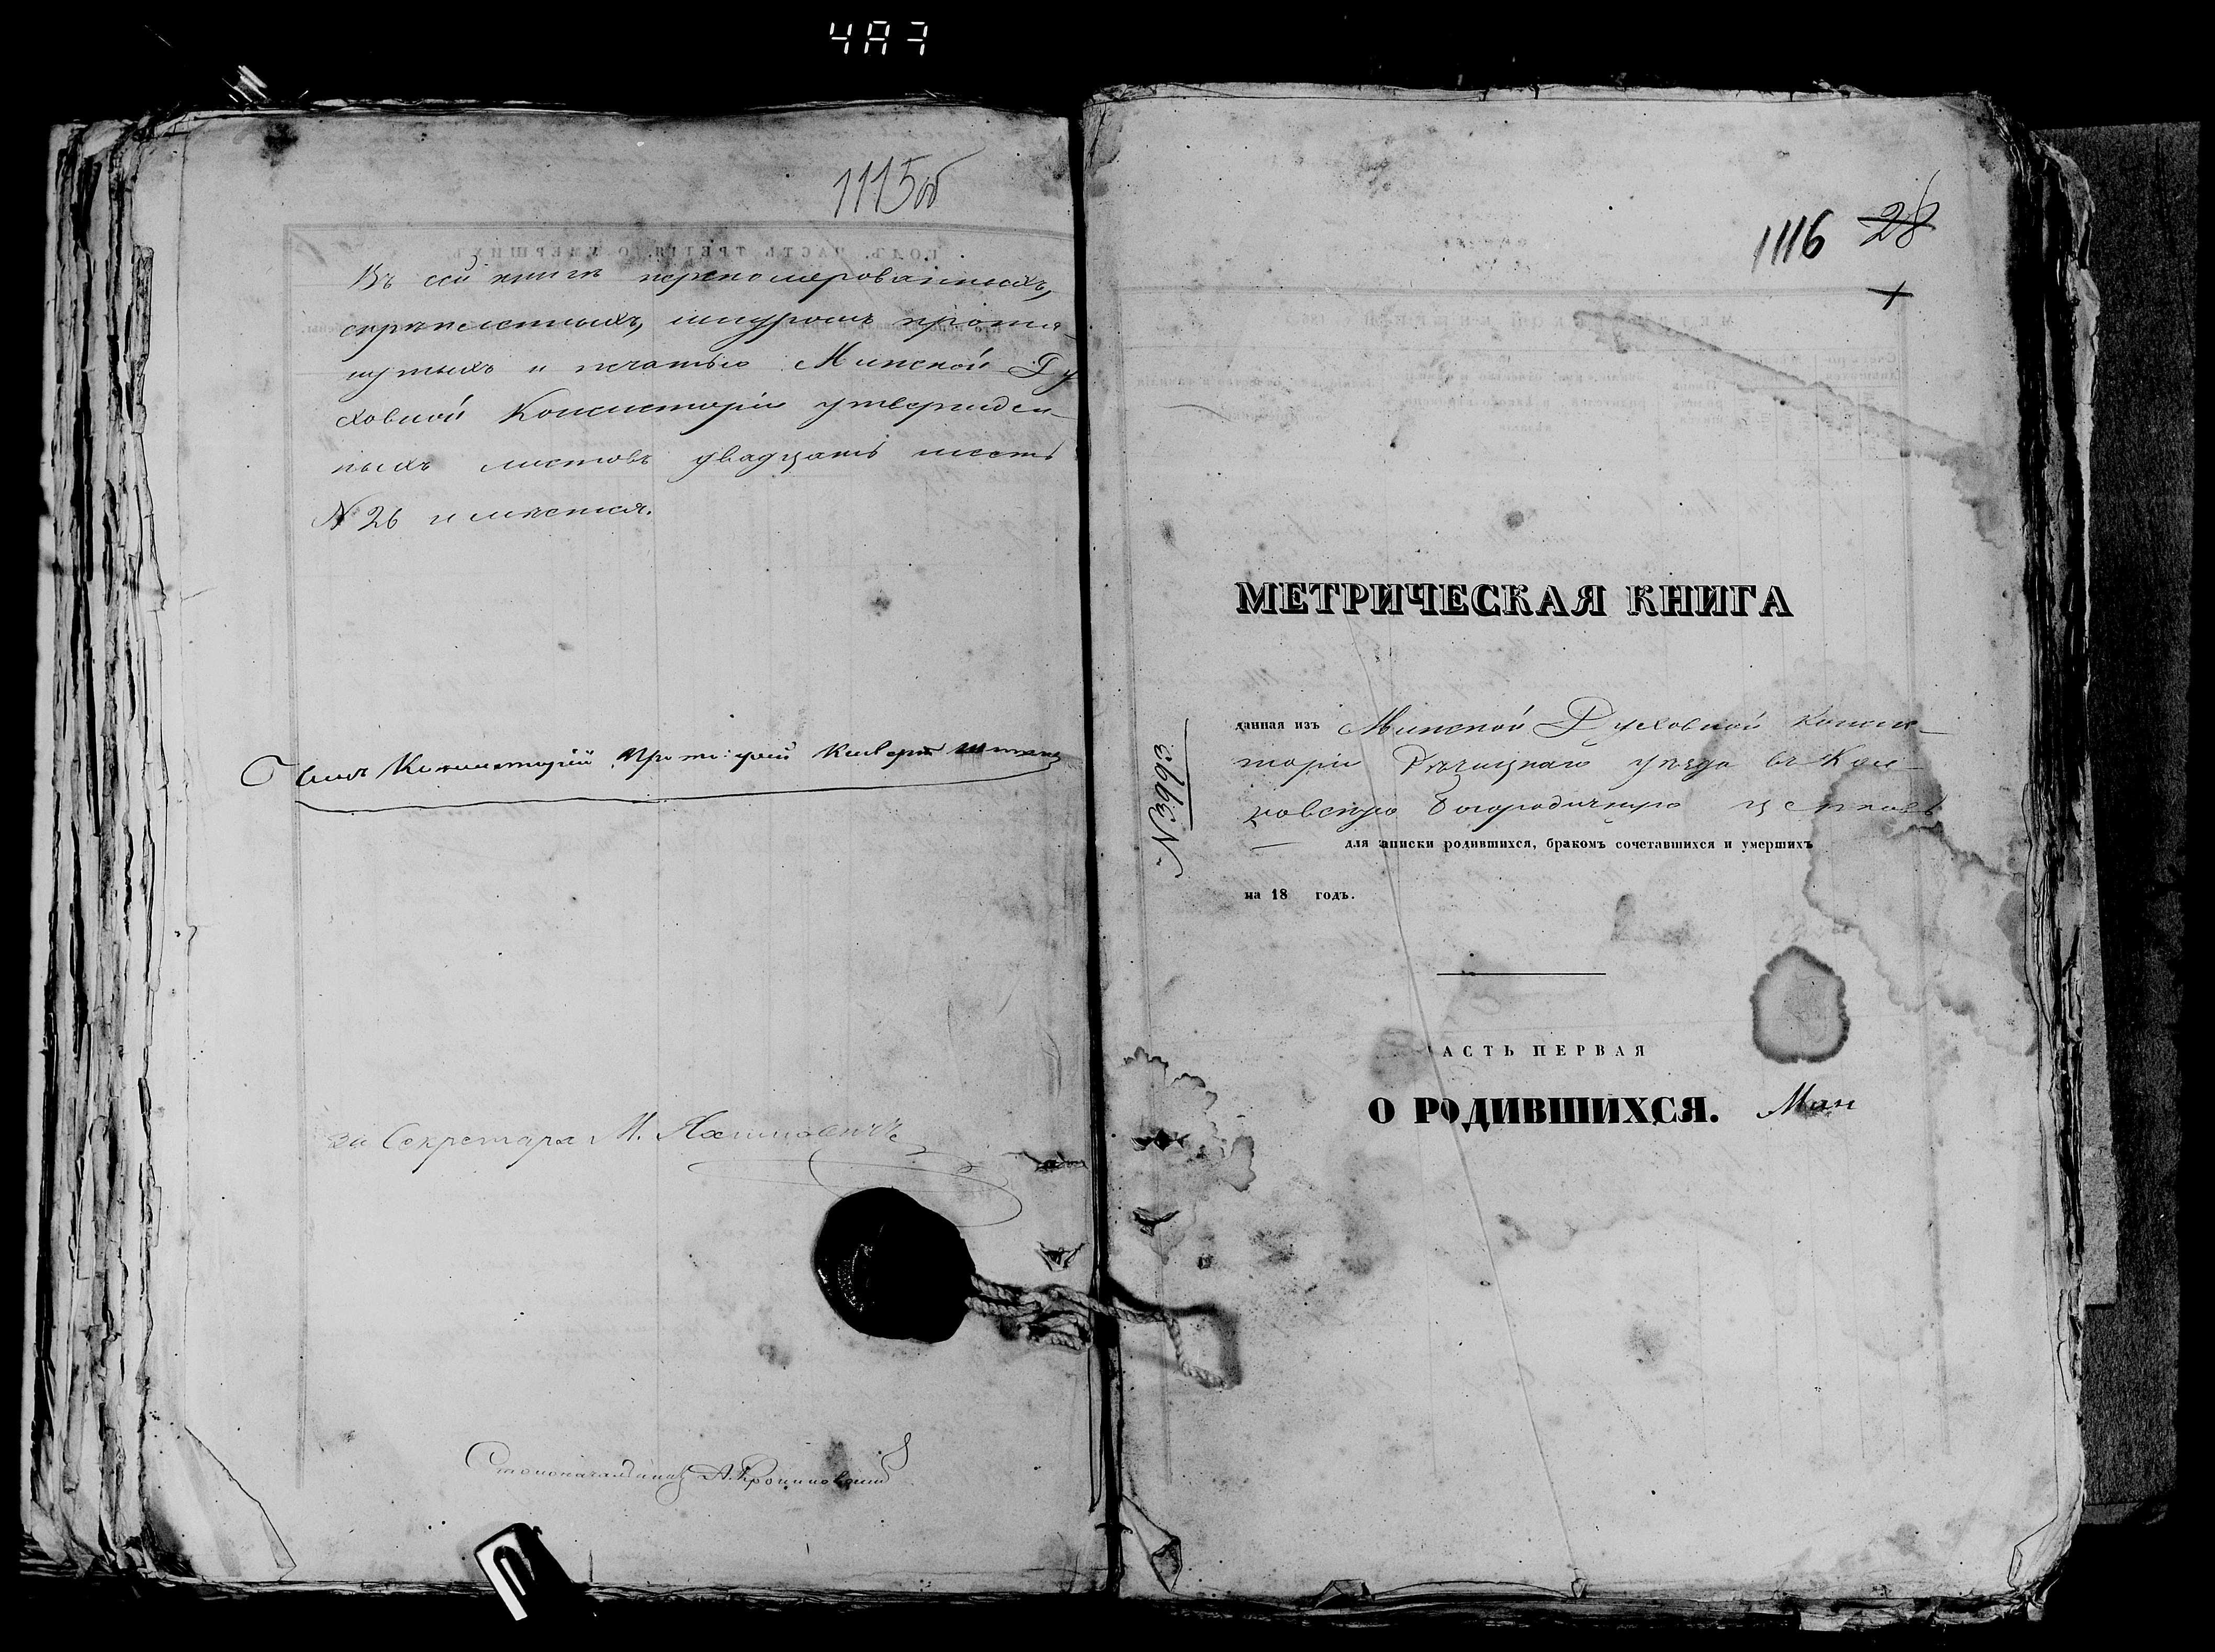 4A7
1115об
Въ сей книгѣ перенумерованныхъ,
скрѣпленныхъ, шнуромъ протя-
нутыхъ и печатью Минской Ду
ховной Консисторіи утвержден-
ныхъ листовъ двадцать шесть
№ 26 имѣется.
Членъ Консисторіи
За Секретаря М.
Столоначальникъ А.
1116 28
МЕТРИЧЕСКАЯ КНИГА
данная изъ Минской Духовной Консис-
торіи Рѣчицкаго уѣзда въ
Богородичную церковь
для записки родившихся, бракомъ сочетавшихся и умершихъ
на 18 годъ.
№3993
АСТЬ ПЕРВАЯ
О РОДИВШИХСЯ. Ман